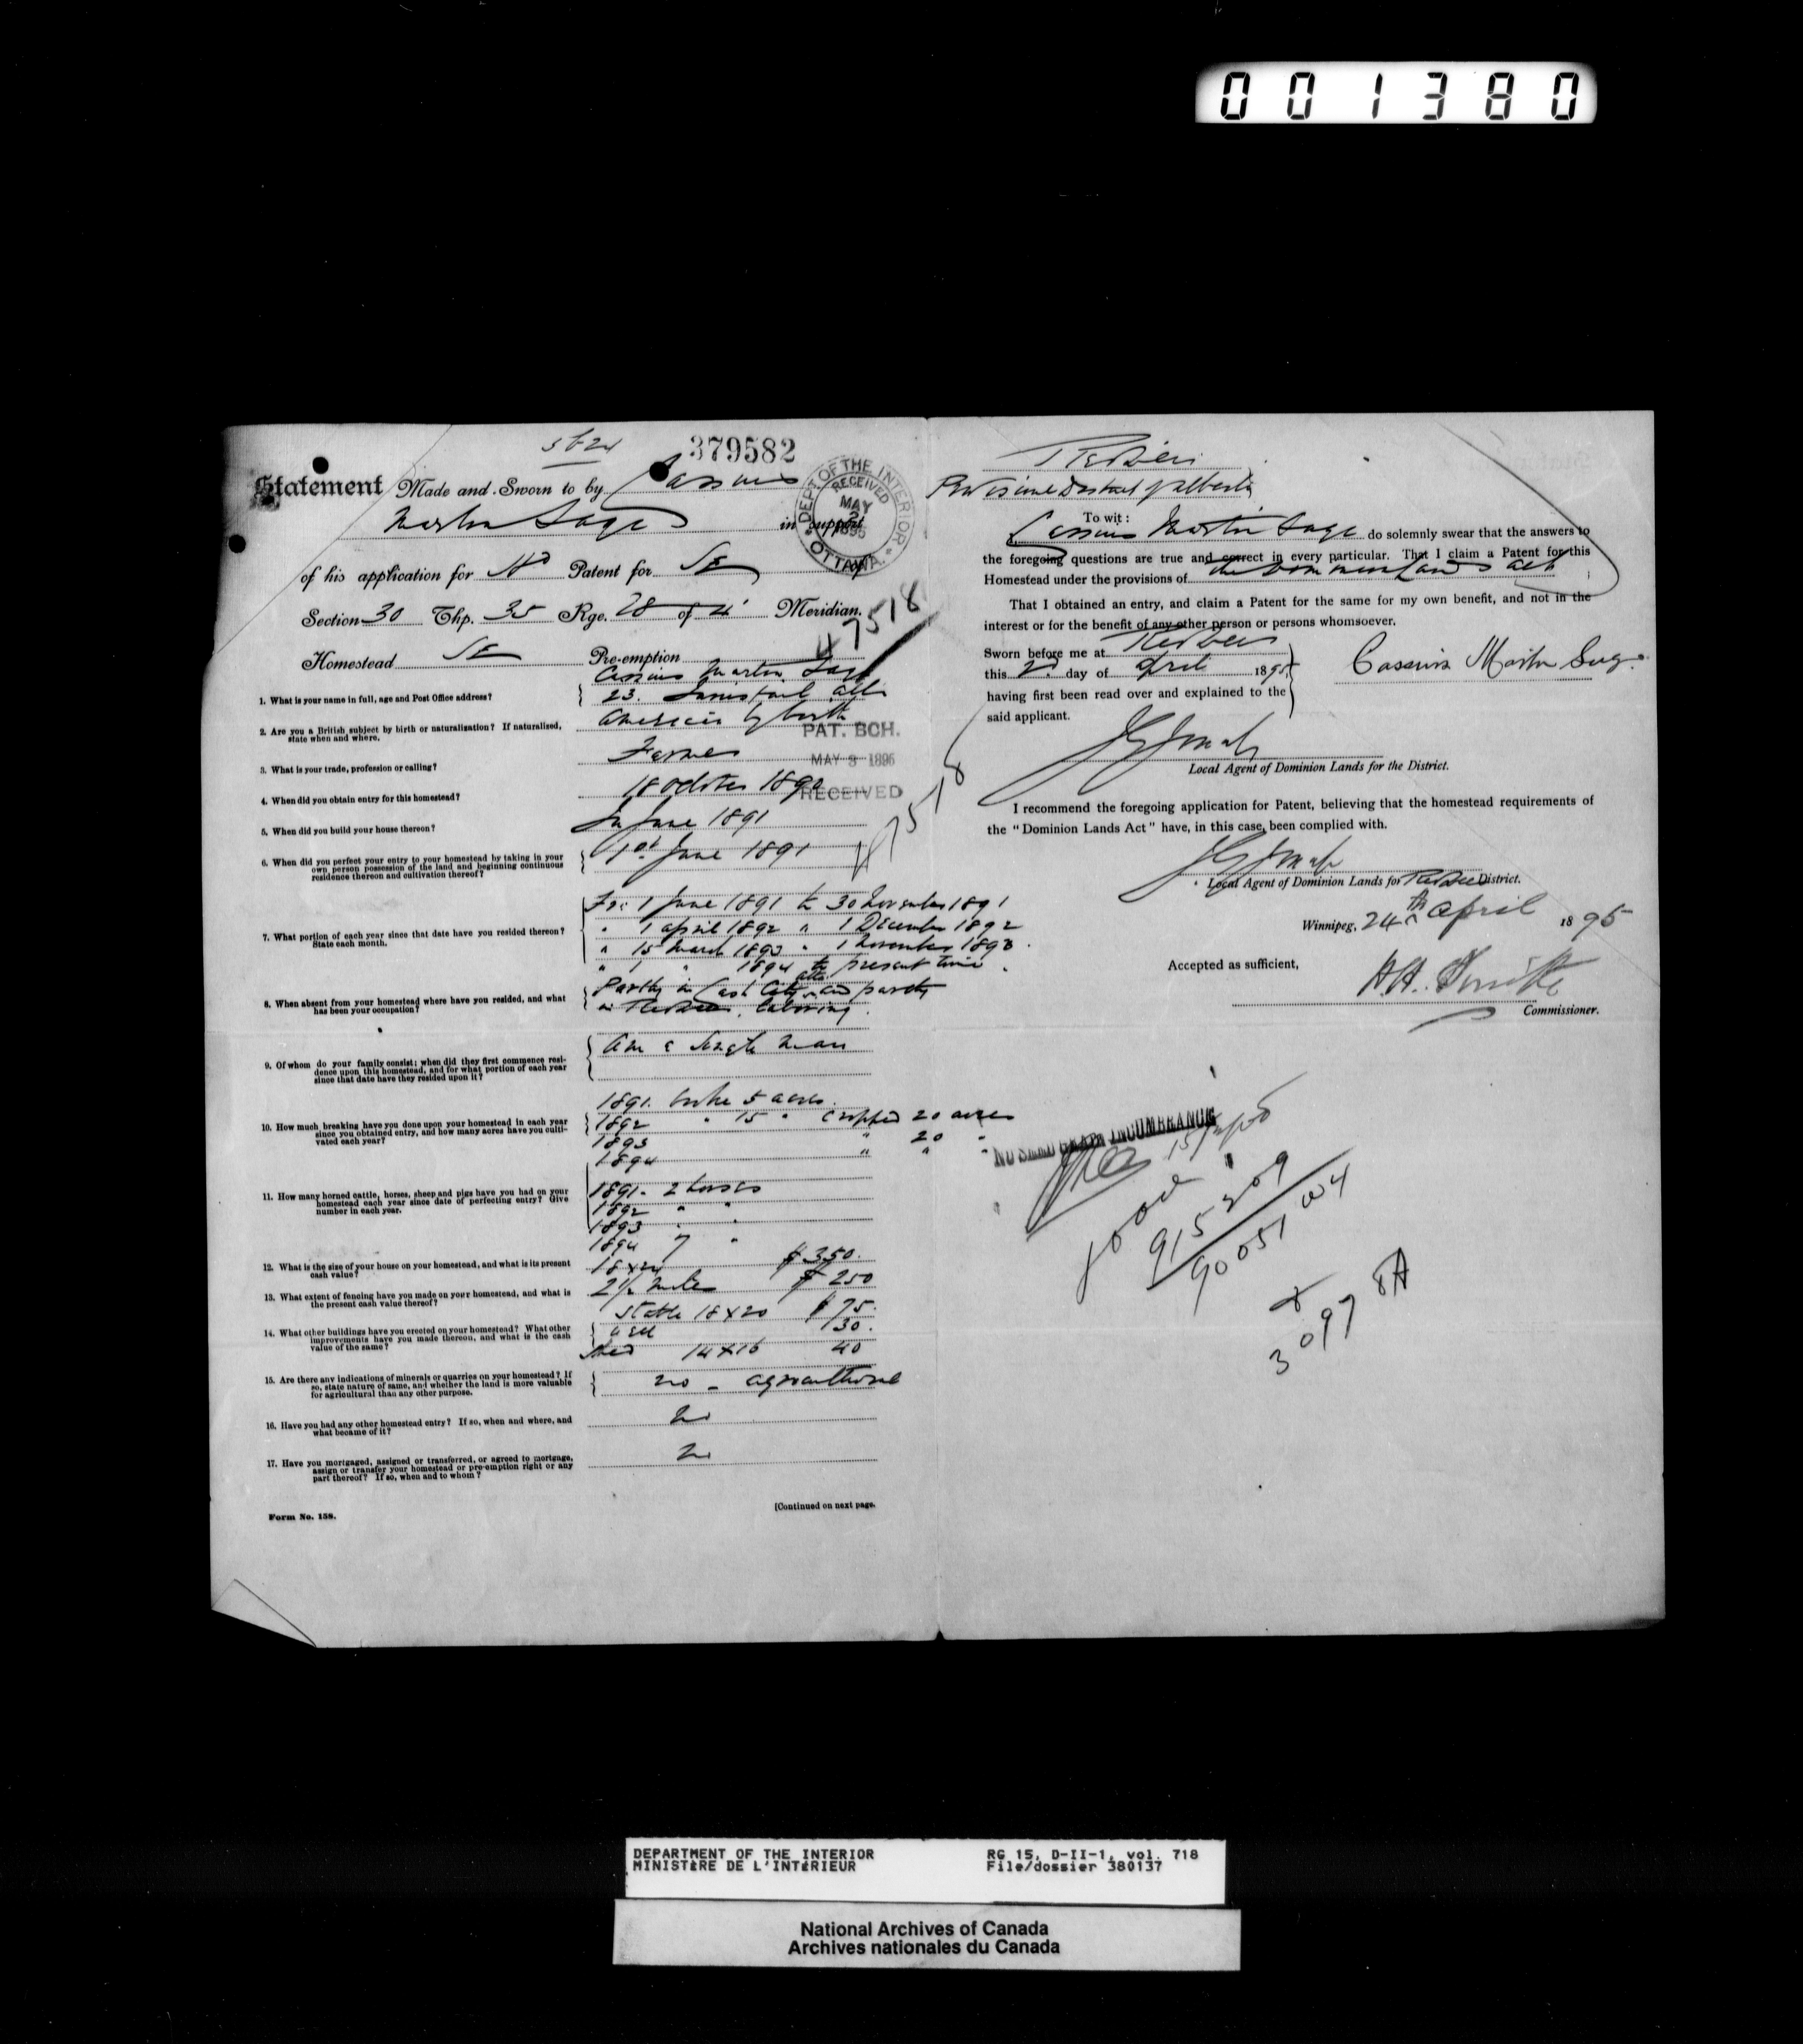 001380
5624
379582
Statement Made and Sworn to by Cassius
Martin Sage in support
DEPT OF THE INTERIOR
RECEIVED
MAY
OTTAWA
of his application for Hd Patent for SE of
Section 30 Thp. 35 Rge. 28 of 4 Meridian.
Homestead SE Pre-emption
17518
1. What is your name in full, age and Post Office address?
Cassius Martin Sage
23. Innisfail Alta
2. Are you a British subject by birth or naturalization? If naturalized,
state when and where.
American by birth
PAT. BCH.
MAY 3 1895
RECEIVED
3. What is your trade, profession or calling?
Farmer
4. When did you obtain entry for this homestead?
18 October 1890
5. When did you build your house thereon?
In June 1891
6. When did you perfect your entry to your homestead by taking in your
own person possession of the land and beginning continuous
residence thereon and cultivation thereof?
1st June 1891
17518
7. What portion of each year since that date have you resided thereon?
State each month.
Fr: 1 June 1891 to 30 November 1891
" 1 April 1892 " 1 December 1892
" 15 March 1893 " 1 November 1893.
" 1 " 1894 to present time.
8. When absent from your homestead where have you resided, and what
has been your occupation?
Partly in Cash City Alta and partly
in Red Deer, laboring.
9. Of whom do your family consist; when did they first commence resi-
dence upon this homestead, and for what portion of each year
since that date have they resided upon it?
Am a single man
10. How much breaking have you done upon your homestead in each year
since you obtained entry, and how many acres have you culti-
vated each year?
1891. broke 5 acres.
1892 " 15 " cropped 20 acres
1893 " 20 "
1894 " " "
11. How many horned cattle, horses, sheep and pigs have you had on your
homestead each year since date of perfecting entry? Give
number in each year.
1891. 2 horses
1892 " "
1893 " "
1894 7 "
12. What is the size of your house on your homestead, and what is its present
cash value?
18 x 24 $350.
13. What extent of fencing have you made on your homestead, and what is
the present cash value thereof?
2 1/2 miles $250
14. What other buildings have you erected on your homestead? What other
improvements have you made thereon, and what is the cash
value of the same?
Stable 18 x 20 $75.
Well 30.
Shed 14 x 16 40
15. Are there any indications of minerals or quarries on your homestead? If
so, state nature of same, and whether the land is more valuable
for agricultural than any other purpose.
no - agricultural
16. Have you had any other homestead entry? If so, when and where, and
what became of it?
No
17. Have you mortgaged, assigned or transferred, or agreed to mortgage,
assign or transfer your homestead or pre-emption right or any
part thereof? If so, when and to whom?
No
[Continued on next page.
Form No. 158.
Red Deer
Provisional District of Alberta
To wit:
I, Cassius Martin Sage do solemnly swear that the answers to
the foregoing questions are true and correct in every particular. That I claim a Patent for this
Homestead under the provisions of the Dominion Lands Act;
That I obtained an entry, and claim a Patent for the same for my own benefit, and not in the
interest or for the benefit of any other person or persons whomsoever.
Sworn before me at Red Deer
this 2d day of April 1895,
having first been read over and explained to the
said applicant.
Cassius Martin Sage.
Local Agent of Dominion Lands for the District.
I recommend the foregoing application for Patent, believing that the homestead requirements of
the "Dominion Lands Act" have, in this case, been complied with.
Local Agent of Dominion Lands for Red Deer District.
Winnipeg, 24th April 1895
Accepted as sufficient,
H.H. Smith
Commissioner.
NO SEED GRAIN INCUMBRANCE
915209
90051
3097 8A
DEPARTMENT OF THE INTERIOR
MINISTÈRE DE L'INTÉRIEUR
RG 15, D-II-1, vol. 718
File/dossier 380137
National Archives of Canada
Archives nationales du Canada